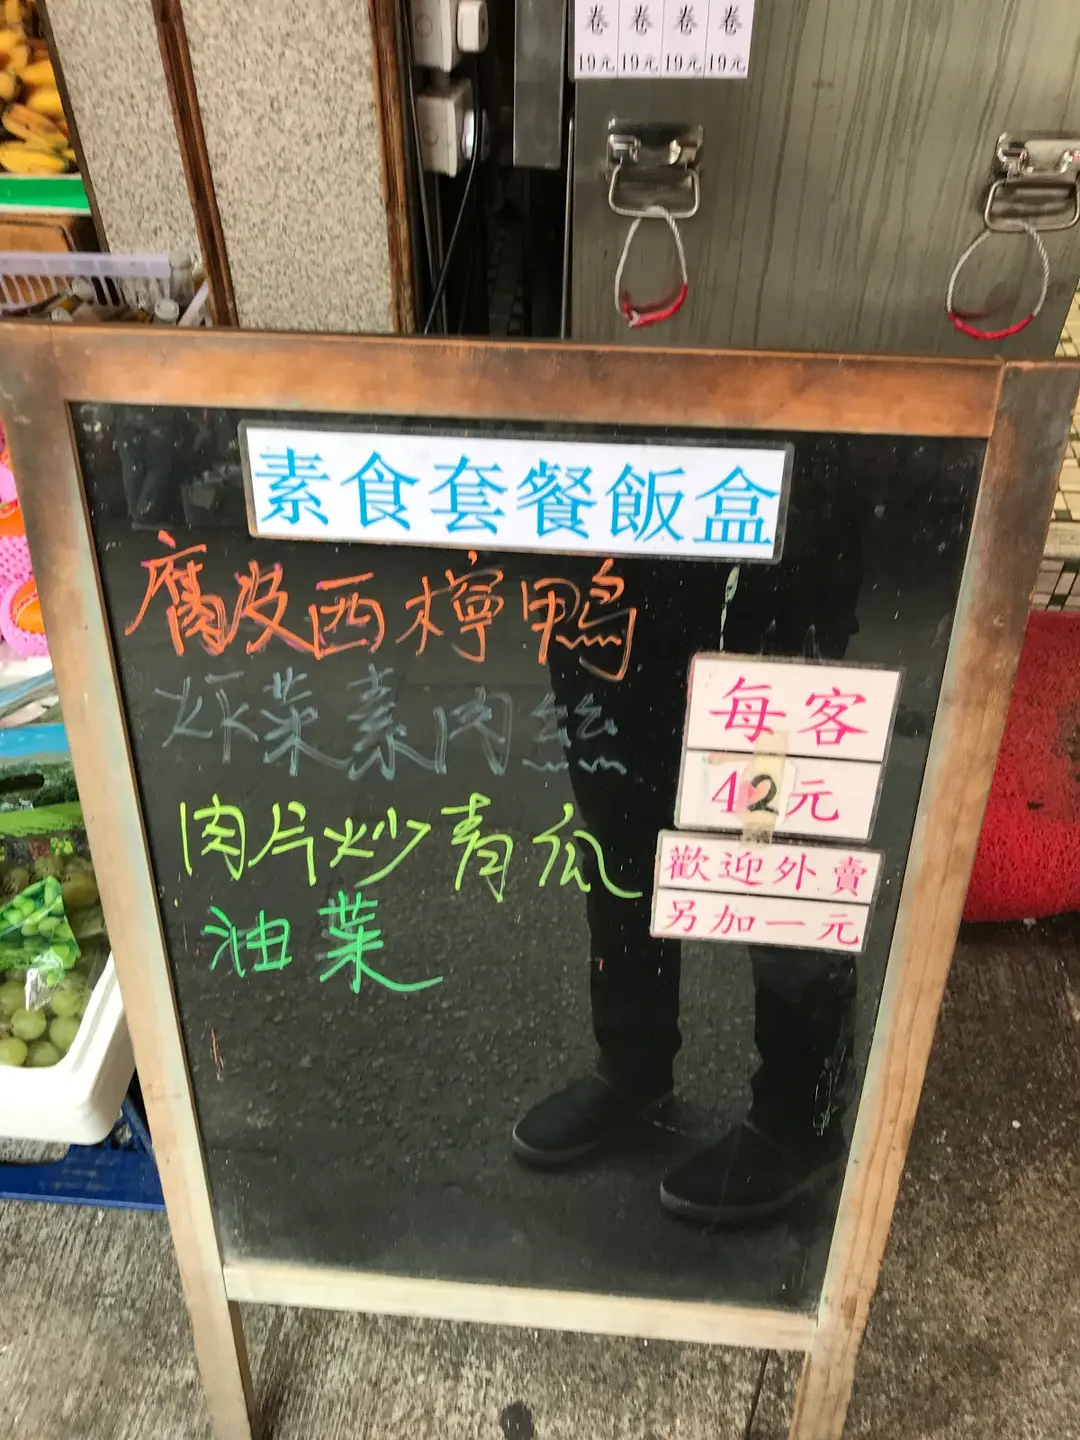 卷 卷 卷 卷
19元 19元 19元 19元
素食套餐飯盒
腐皮西檸鴨
炸菜素肉絲
肉片炒青瓜
油菜
每客
42元
歡迎外賣
另加一元